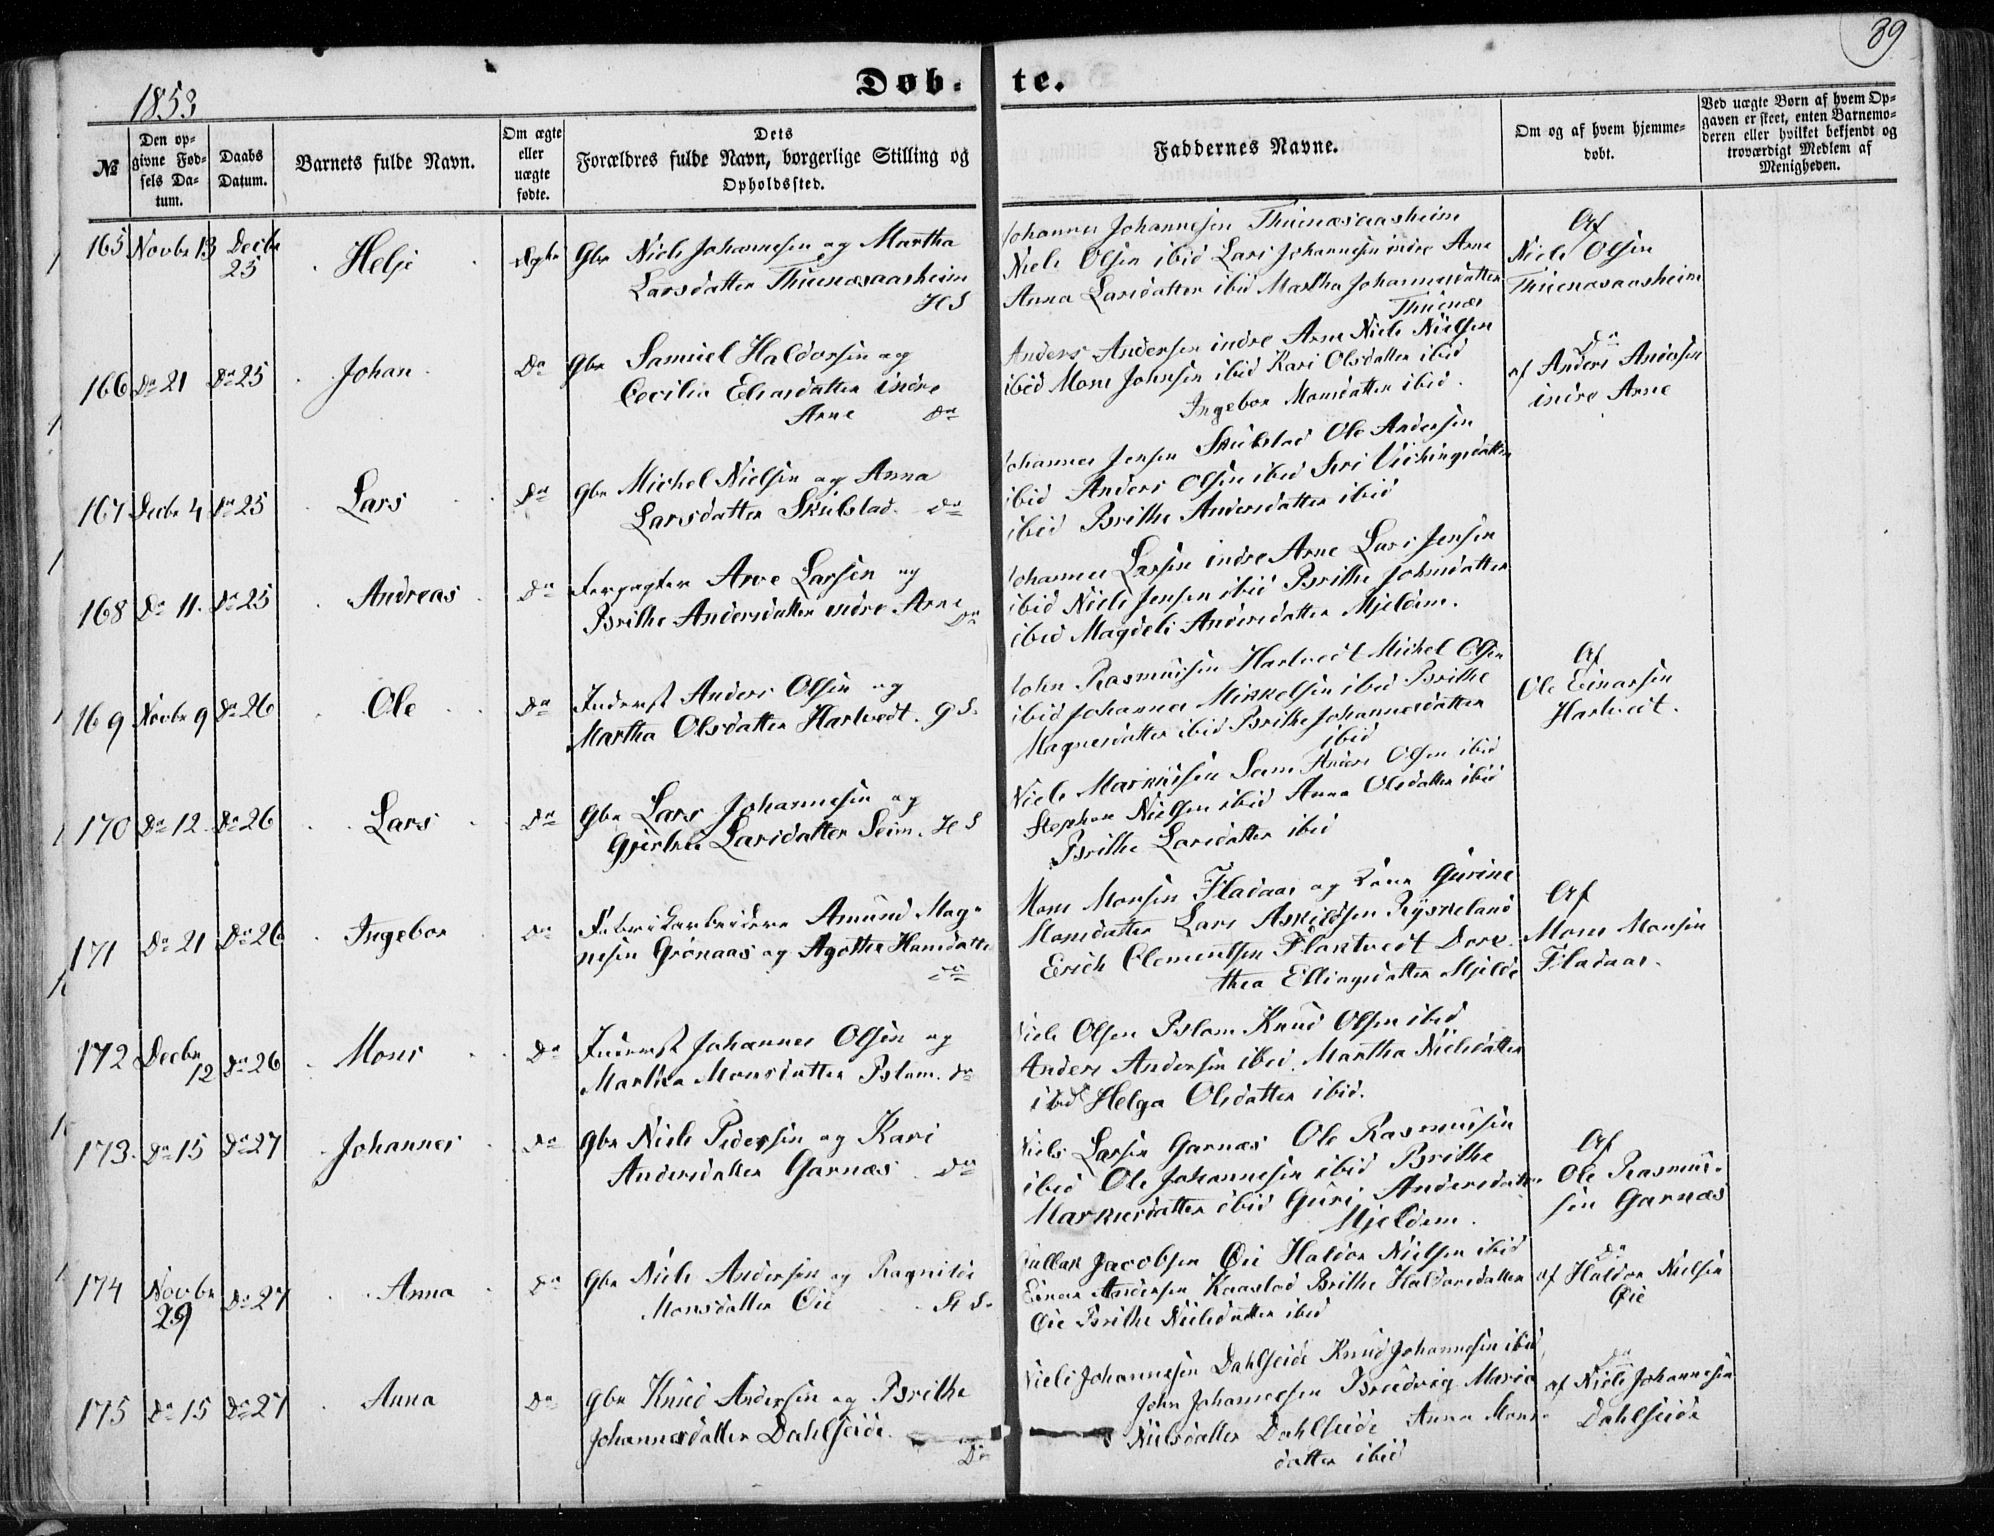 89
1853
Døb- te.
№
Den op-
givne Fød-
sels Da-
tum.
Daabs
Datum.
Barnets fulde Navn.
Om ægte
eller
uægte
fødte.
Dets
Forældres fulde Navn, borgerlige Stilling og
Opholdssted.
Faddernes Navne.
Om og af hvem hjemme-
døbt.
Ved uægte Børn af hvem Op-
gaven er skeet, enten Barnemo-
deren eller hvilket bekjendt og
troværdigt Medlem af
Menigheden.
165 Novbr 13 Decbr 25 Helje Ægte
Gbr Niels Johannesen og Martha
Larsdatter Thunæsaasheim
HS
Johannes Johannesen Thunæsaasheim
Niels Olsen ibid Lars Johannesen indre Arne
Anna Larsdatter ibid Martha Johannesdatter
Thunæs
Af
Niels Olsen
Thunæsaasheim
166 Do 21 Do 25 Johan Do
Gbr Samuel Haldorsen og
Cecilia Eliasdatter indre
Arne Do
Anders Andersen indre Arne Niels Nielsen
ibid Mons Johnsen ibid Kari Olsdatter ibid
Ingebor Monsdatter ibid.
Do
af Anders Andersen
indre Arne
167 Decbr 4 Do 25 Lars Do
Gbr Michel Nielsen og Anna
Larsdatter Skulstad Do
Johannes Jensen Skulstad Ole Andersen
ibid Anders Olsen ibid Siri Vichingsdatter
ibid Brithe Andersdatter ibid
168 Do 11. Do 25 Andreas Do
Forpagter Arve Larsen og
Brithe Andersdatter indre Arne
Do
Johannes Larsen indre Arne Lars Jensen
ibid Niels Jensen ibid Brithe Johnsdatter
ibid Magdeli Andersdatter Mjeldem.
169 Novbr 9 Do 26 Ole Do
Inderst Anders Olsen og
Martha Olsdatter Hartvedt. GS.
John Rasmussen Hartvedt Michel Olsen
ibid Johannes Mikkelsen ibid Brithe
Magnesdatter ibid Brithe Johannesdatter
ibid
Af
Ole Einarsen
Hartvedt.
170 Do 12 Do 26 Lars Do
Gbr Lars Johannesen og
Gjertrue Larsdatter Seim. HS
Niels Markusen Seim Anders Olsen ibid
Stephen Nielsen ibid Anna Olsdatter ibid
Brithe Larsdatter ibid
171 Do 21 Do 26 Ingebor Do
Fabrikarbeider Amund Mag-
nesen Grønaas og Agothe Hansdatter
Do
Mons Monsen Fladaas og Kone Gurine
Monsdatter Lars Askildsen Rysseland
Erich Clementsen Flaktvedt Doro-
thea Ellingsdatter Mjelde
Af
Mons Monsen
Fladaas.
172 Decbr 12 Do 26 Mons Do
Inderst Johannes Olsen og
Martha Monsdatter Blom. Do
Niels Olsen Blom Knud Olsen ibid
Anders Andersen ibid. Martha Nielsdatter
ibid Helga Olsdatter ibid.
173. Do 15 Do 27 Johannes Do
Gbr Niels Pedersen og Kari
Andersdatter Garnæs. Do
Niels Larsen Garnæs Ole Rasmussen
ibid Ole Johannesen ibid Brithe
Markusdatter ibid Guri Andersdatter
Mjeldem.
Af
Ole Rasmus-
sen Garnæs
174 Novbr 29 Do 27 Anna Do
Gbr Niels Andersen og Ragnilde
Monsdatter Øie HS.
Jacobsen Øie Haldor Nielsen ibid
Einar Andersen Kaastad Brithe Haldorsdatter
Øie Brithe Nielsdatter ibid
Do
af Haldor Nielsen
Øie
175 Do 15 Do 27 Anna Do
Gbr Knud Andersen og Brithe
Johannesdatter Dahlseide.
Do
Niels Johannesen Dahlseide Knud Johannesen ibid
John Johannesen Brudvig Maria
Nielsdatter Dahlseide Anna Mons-
datter ibid
Do
af Niels Johannesen
Dahlseide